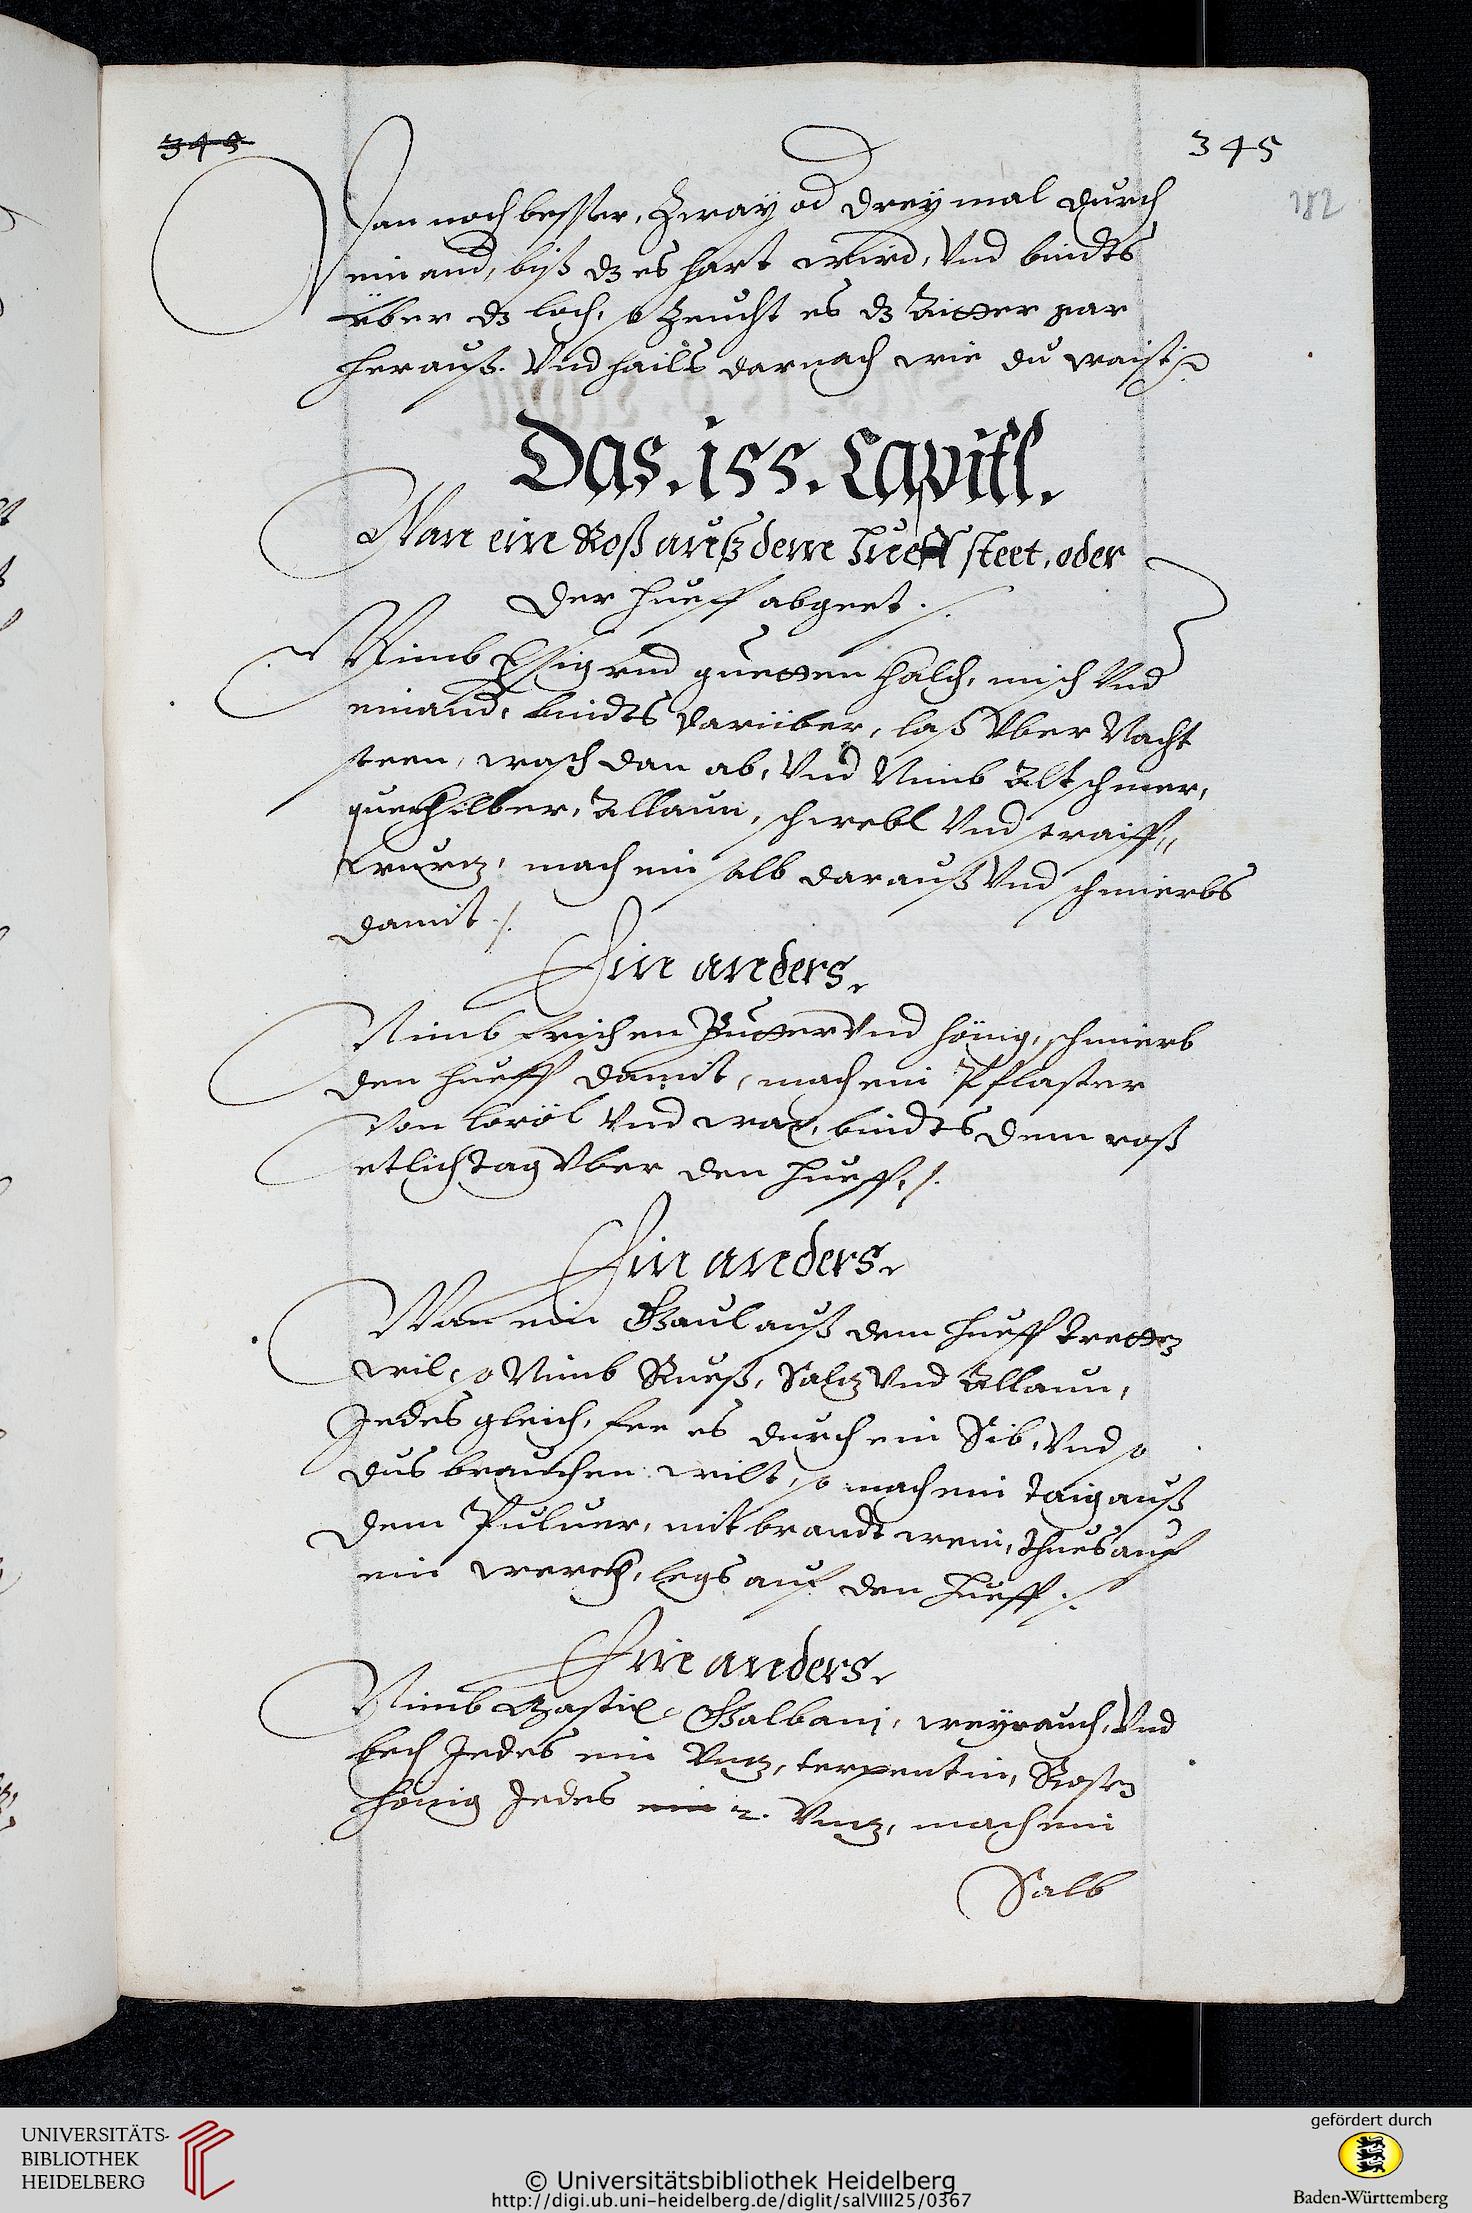 343
345
182
Dan noch besser, Zway od drey mal durch
ein and, biß dz es hart wird, Vnd bindts
über dz loch, so Zeucht es dz Aitter gar
herauß. Vnd hails darnach wie du waist
Das. 155. Capitl.
Wan ein Roß auß dem Hueff steet, oder
der hueff abgeet ./.
Nimb Essig vnd guetten Kalch, misch Vnd
einand, bindts darüber, laß Vber Nacht
steen, wasch dan ab, Vnd Nimb Alt schmer,
queckhsilber, Allaun, schwebl Vnd
wurz, mach ein salb darauß Vnd schmierbs
damit ./.
Ein anders.
Nimb frischen Putter Vnd hönig, schmierb
den hueff damit, mach ein Pflaster
Von loröl Vnd wax, bindts dem roß
etlich tag Vber den hueff, ./.
Ein anders.
Wan ein Gaul auß dem hueff tretten
wil, so Nimb Rueß, Salz Vnd Allaun,
Jedes gleich, see es durch ein Sib, Vnd so
dus brauchen wilt, so mach ein taig auß
dem Puluer, mit brandt wein, thues auf
ein werckh, legs auf den Hueff ./.
Ein anders.
Nimb Mastix, Galbani, weyrauch, Vnd
bech Jedes ein Vnz, terpentin, Rosen
hönig Jedes ein 2. Vnz, mach ein
Salb
UNIVERSITÄTS-
BIBLIOTHEK
HEIDELBERG
© Universitätsbibliothek Heidelberg
http://digi.ub.uni-heidelberg.de/diglit/salVIII25/0367
gefördert durch
Baden-Württemberg